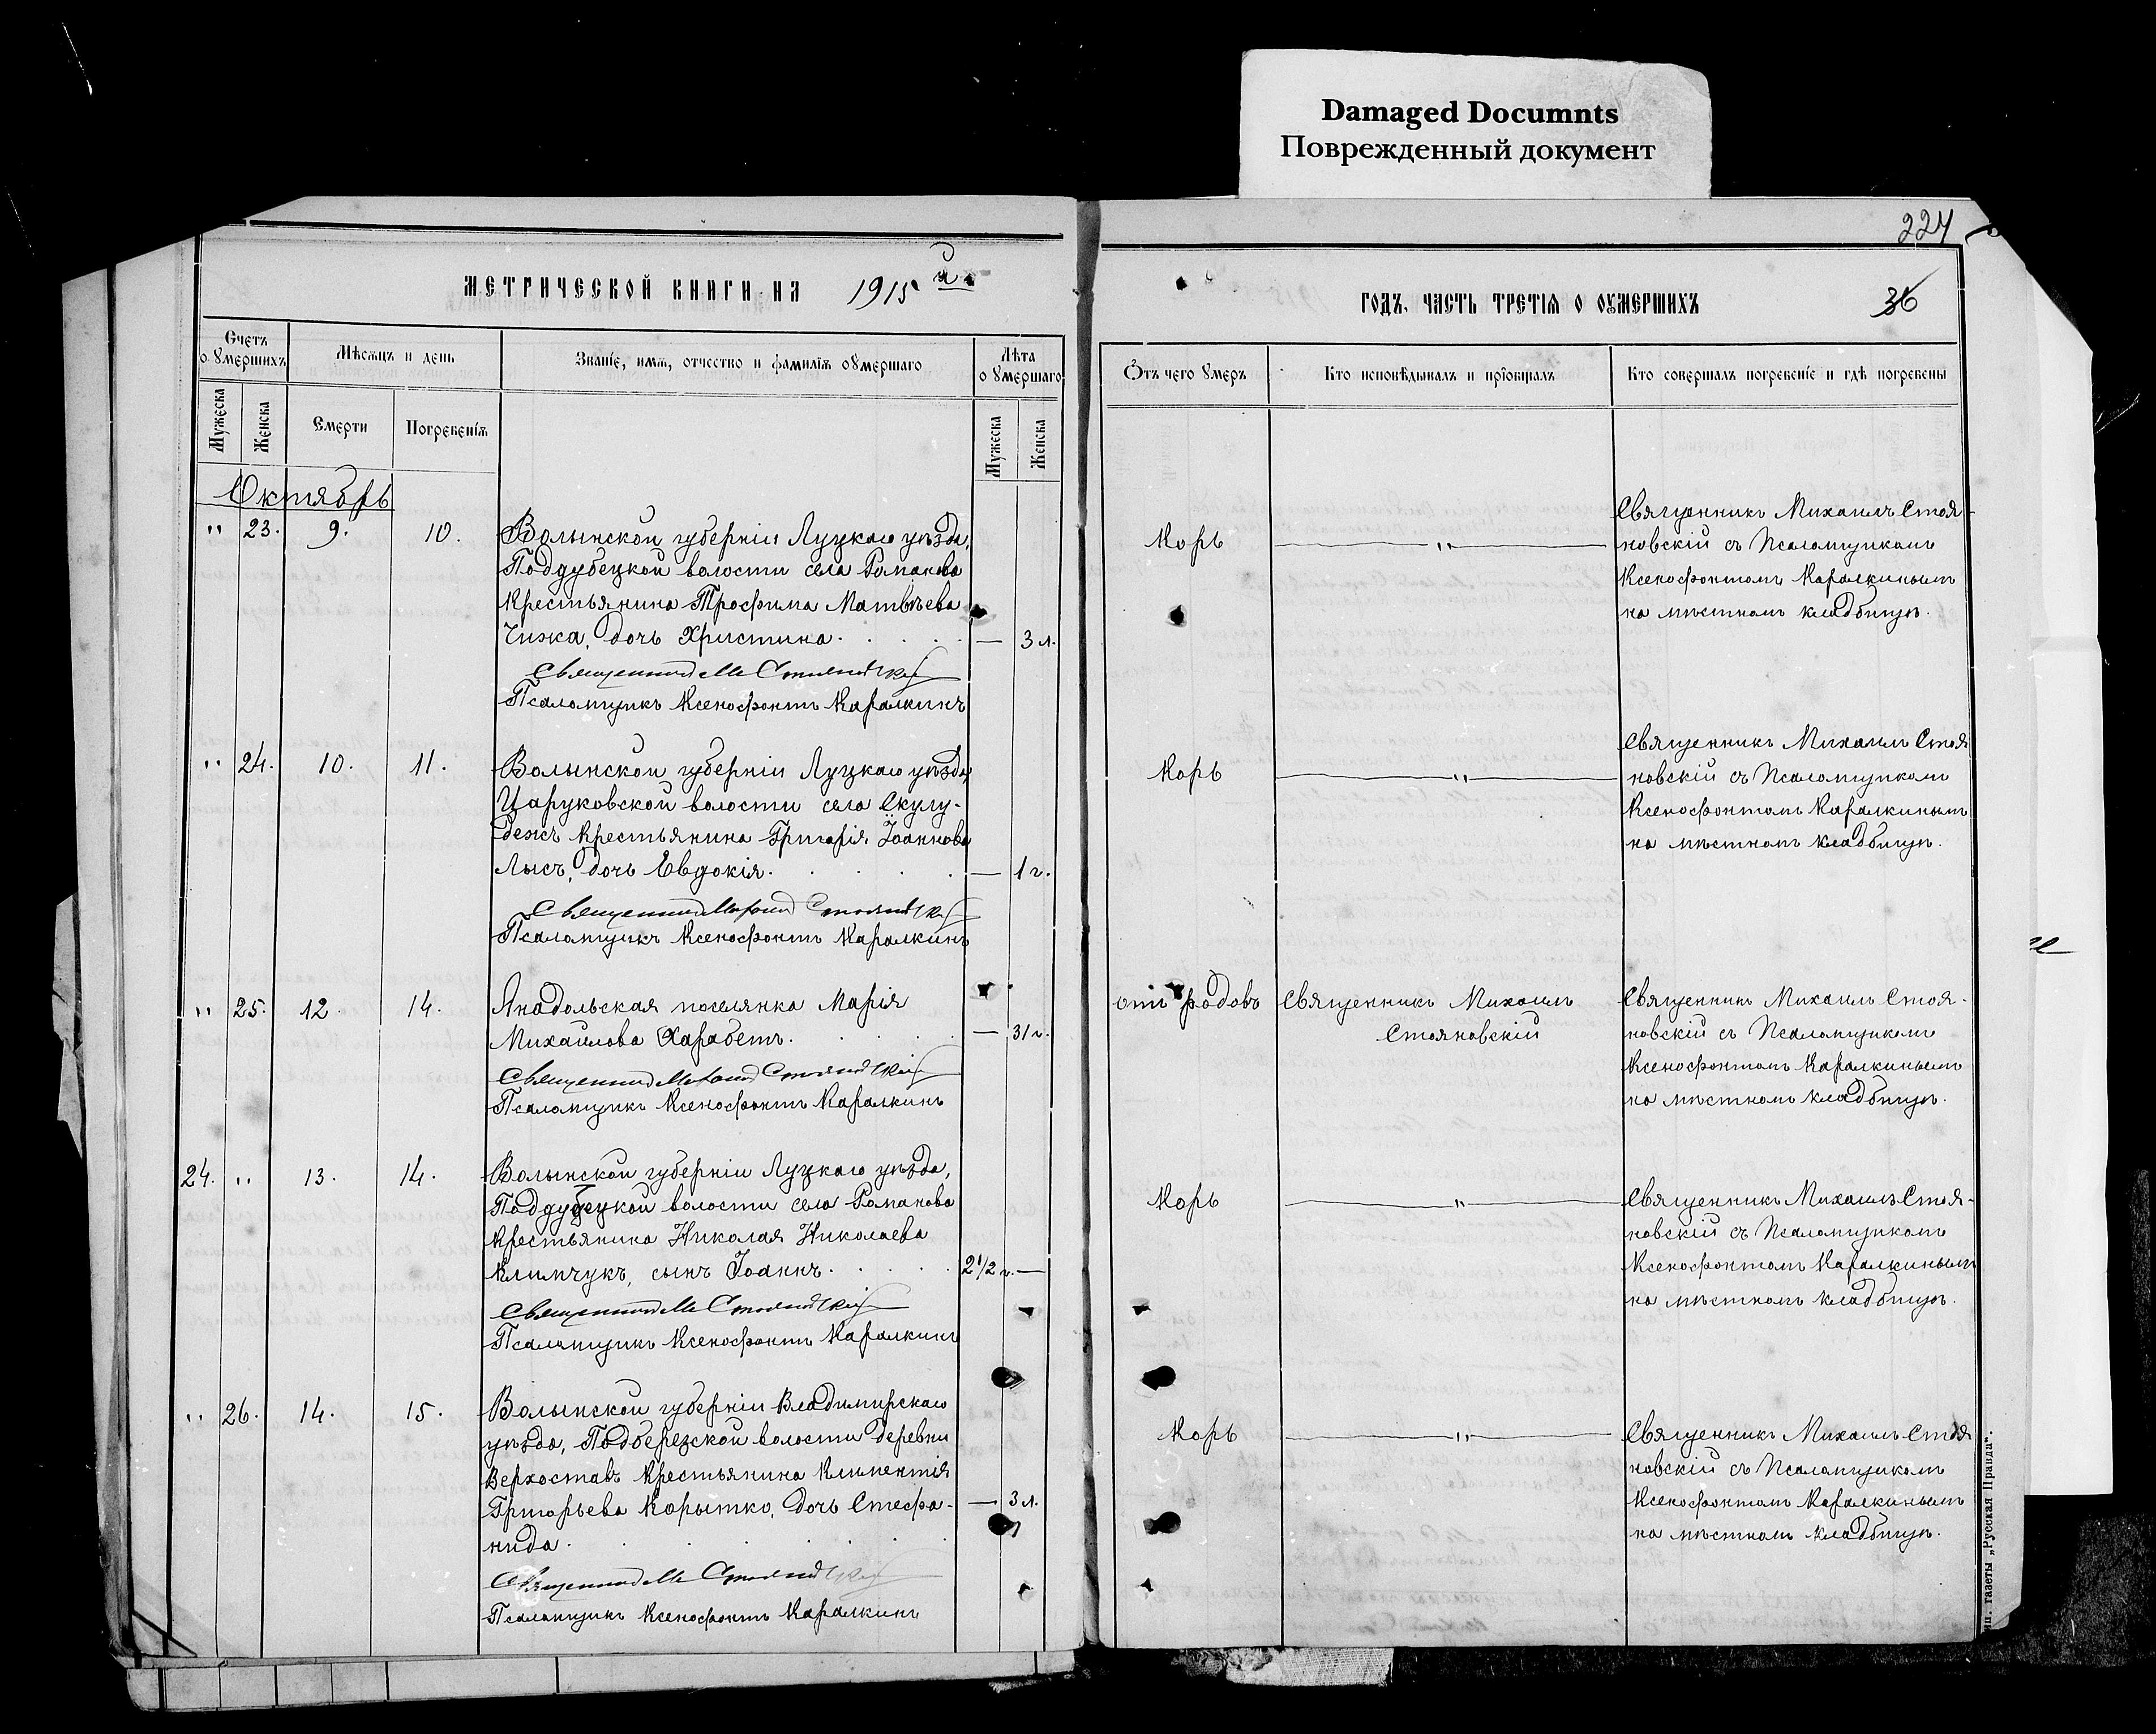 Damaged Documnts
Поврежденный документ
224
МЕТРИЧЕСКОЙ КНИГИ НА 1915 й
ГОДЪ, ЧАСТЬ ТРЕТІЯ О ОУМЕРШИХЪ
36
Счетъ
о Умершихъ
Мѣсяцъ и день
Званіе, имя, отчество и фамилія оумершаго
Лѣта
о Умершаго
Отъ чего Умеръ
Кто исповѣдывалъ и пріобщалъ
Кто совершалъ погребеніе и гдѣ погребены
Мужеска
Женска
Смерти
Погребенія
Мужеска
Женска
Октябрь
" 23. 9. 10.
Волынской губерніи Луцкаго уѣзда,
Поддубецкой волости села Романова
крестьянина Трофима Матвѣева
Чижа, дочь Христина. — 3 л.
Священникъ М Стояновскій
Псаломщикъ Ксенофонтъ Каралкинъ
Корь
"
Священникъ Михаилъ Стоя-
новскій съ Псаломщикомъ
Ксенофонтомъ Каралкинымъ
на мѣстномъ кладбищѣ.
" 24. 10. 11.
Волынской губерніи Луцкаго уѣзда,
Щаруковской волости села Скулу-
бежъ крестьянина Григорія Іоаннова
Лысъ, дочь Евдокія. — 1 г.
Священникъ Михаилъ Стояновскій
Псаломщикъ Ксенофонтъ Каралкинъ
Корь
"
Священникъ Михаилъ Стоя
новскій съ Псаломщикомъ
Ксенофонтомъ Каралкинымъ
на мѣстномъ кладбищѣ.
" 25. 12. 14.
Анадольская поселянка Марія
Михайлова Харабетъ. — 31 г.
Священникъ Михаилъ Стояновскій
Псаломщикъ Ксенофонтъ Каралкинъ
отъ родовъ
Священникъ Михаилъ
Стояновскій
Священникъ Михаилъ Стоя-
новскій съ Псаломщикомъ
Ксенофонтомъ Каралкинымъ
на мѣстномъ кладбищѣ.
24. " 13. 14.
Волынской губерніи Луцкаго уѣзда,
Поддубецкой волости села Романова
крестьянина Николая Николаева
Климчукъ, сынъ Іоаннъ. 2 1/2 г. —
Священникъ М Стояновскій
Псаломщикъ Ксенофонтъ Каралкинъ
Корь
"
Священникъ Михаилъ Стоя-
новскій съ Псаломщикомъ
Ксенофонтомъ Каралкинымъ
на мѣстномъ кладбищѣ.
" 26. 14. 15.
Волынской губерніи Владимирскаго
уѣзда, Подберезской волости деревни
Верхоставъ крестьянина Климентія
Григорьева Корытко, дочь Стефа- — 3 л.
нида.
Священникъ М Стояновскій
Псаломщикъ Ксенофонтъ Каралкинъ
Корь
"
Священникъ Михаилъ Стоя
новскій съ Псаломщикомъ
Ксенофонтомъ Каралкинымъ
на мѣстномъ кладбищѣ.
газеты „Русская Правда“.